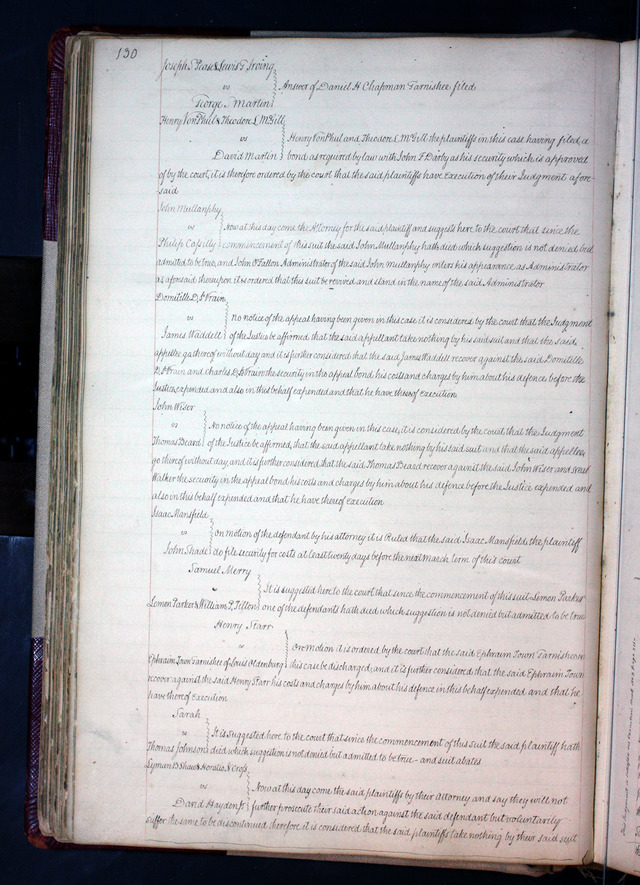 130
Joseph S Pease & Lewis G Irving
vs } Answer of Daniel H Chapman Garnishee filed
George S Martin
Henry Von Phul & Theodore L McGill
vs } Henry Von Phul and Theodore L McGill the plaintiffs in this case having filed, a
David Martin } bond as required by law with John F Darby as his security which is approved
of by the court, it is therefore ordered by the court that the said plaintiffs have execution of their Judgment afore-
said
John Mullanphy
vs } Now at this day come the Attorney for the said plaintiff and suggests here to the court that since the
Philip Cassilly } commencement of this suit the said John Mullanphy hath died which suggestion is not denied but
admitted to be true, and John O'Fallon Administrator of the said John Mullanphy enters his appearance as Administrator
as aforesaid thereupon it is ordered that this suit be revived and stand in the name of the said Administrator
Domitille D, St Vrain
vs } No notice of the appeal having been given in this case it is considered by the court that the Judgment
James Waddell } of the Justice be affirmed, that the said appellant take nothing by his said suit and that the said
appellee go thereof without day and it is further considered that the said James Waddell recover against the said Domitille
D, St Vrain and Charles D, St Vrain the security in the appeal bond, his costs and charges by him about his defence before the
Justice, expended and also in this behalf expended and that he have thereof execution
John Wiser
vs } No notice of the appeal having been given in this case, it is considered by the court that the Judgment
Thomas Beard } of the Justice be affirmed, that the said appellant take nothing by his said suit and that the said appellee,
go thereof without day, and it is further considered that the said Thomas Beard recover against the said John Wiser and
Walker the security in the appeal bond his costs and charges by him about his defence before the Justice expended and
also in this behalf expended and that he have thereof execution
Isaac Mansfield
vs } On motion of the defendant by his attorney it is Ruled that the said Isaac Mansfield, the plaintiff
John Shade } do file security for costs at least twenty days before the next March term of this court
Samuel Merry
vs } It is suggested here to the court that since the commencement of this suit Lemon Parker
Lemon Parker & William P, Tilton } one of the defendants hath died, which suggestion is not denied but admitted to be true
Henry Starr
vs } On motion it is ordered by the court that the said Ephraim Town Garnishee in
Ephraim Town Garnishee of Louis Oldenburg } this case be discharged, and it is further considered that the said Ephraim Town
recover against the said Henry Starr his costs and charges by him about his defence in this behalf expended and that he
have thereof execution
Sarah
vs } It is suggested here to the court that since the commencement of this suit the said plaintiff hath
Thomas Johnson } died, which suggestion is not denied but admitted to be true — and suit abates
Lyman B Shaw & Horatio N Cross
vs } Now at this day come the said plaintiffs by their Attorney and say they will not
David Haydon Jr } further prosecute their said action against the said defendant but voluntarily
suffer the same to be discontinued therefore it is considered that the said plaintiffs take nothing by their said suit